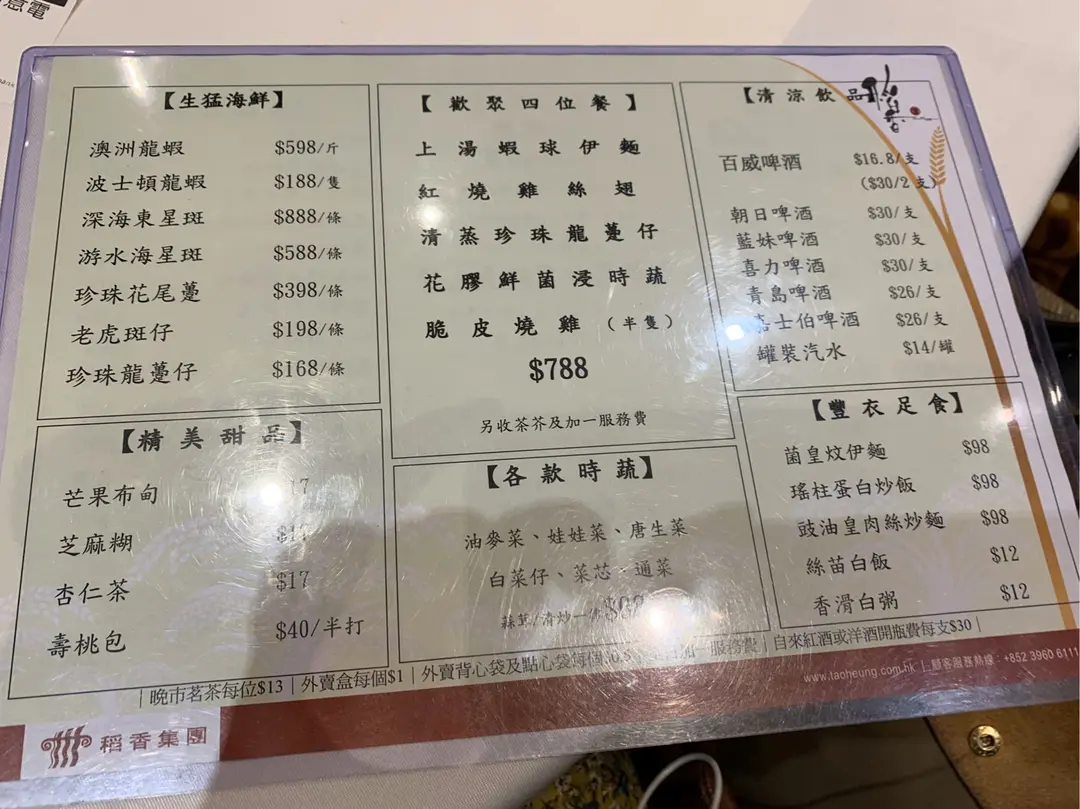 意電
【生猛海鮮】
澳洲龍蝦 $598/斤
波士頓龍蝦 $188/隻
深海東星斑 $888/條
游水海星斑 $588/條
珍珠花尾躉 $398/條
老虎斑仔 $198/條
珍珠龍躉仔 $168/條
【精美甜品】
芒果布甸
芝麻糊
杏仁茶 $17
壽桃包 $40/半打
【歡聚四位餐】
上湯蝦球伊麵
紅燒雞絲翅
清蒸珍珠龍躉仔
花膠鮮菌浸時蔬
脆皮燒雞（半隻）
$788
另收茶芥及加一服務費
【各款時蔬】
油麥菜、娃娃菜、唐生菜
白菜仔、菜芯、通菜
蒜茸/清炒一律
【清涼飲品】
百威啤酒 $16.8/支
($30/2 支)
朝日啤酒 $30/支
藍妹啤酒 $30/支
喜力啤酒 $30/支
青島啤酒 $26/支
嘉士伯啤酒 $26/支
罐裝汽水 $14/罐
【豐衣足食】
菌皇炆伊麵 $98
瑤柱蛋白炒飯 $98
豉油皇肉絲炒麵 $98
絲苗白飯 $12
香滑白粥 $12
| 晚市茗茶每位$13 | 外賣盒每個$1 | 外賣背心袋及點心袋每個 加一服務費 | 自來紅酒或洋酒開瓶費每支$30 |
www.taoheung.com.hk | 顧客服務熱線：+852 3960 6111
稻香集團